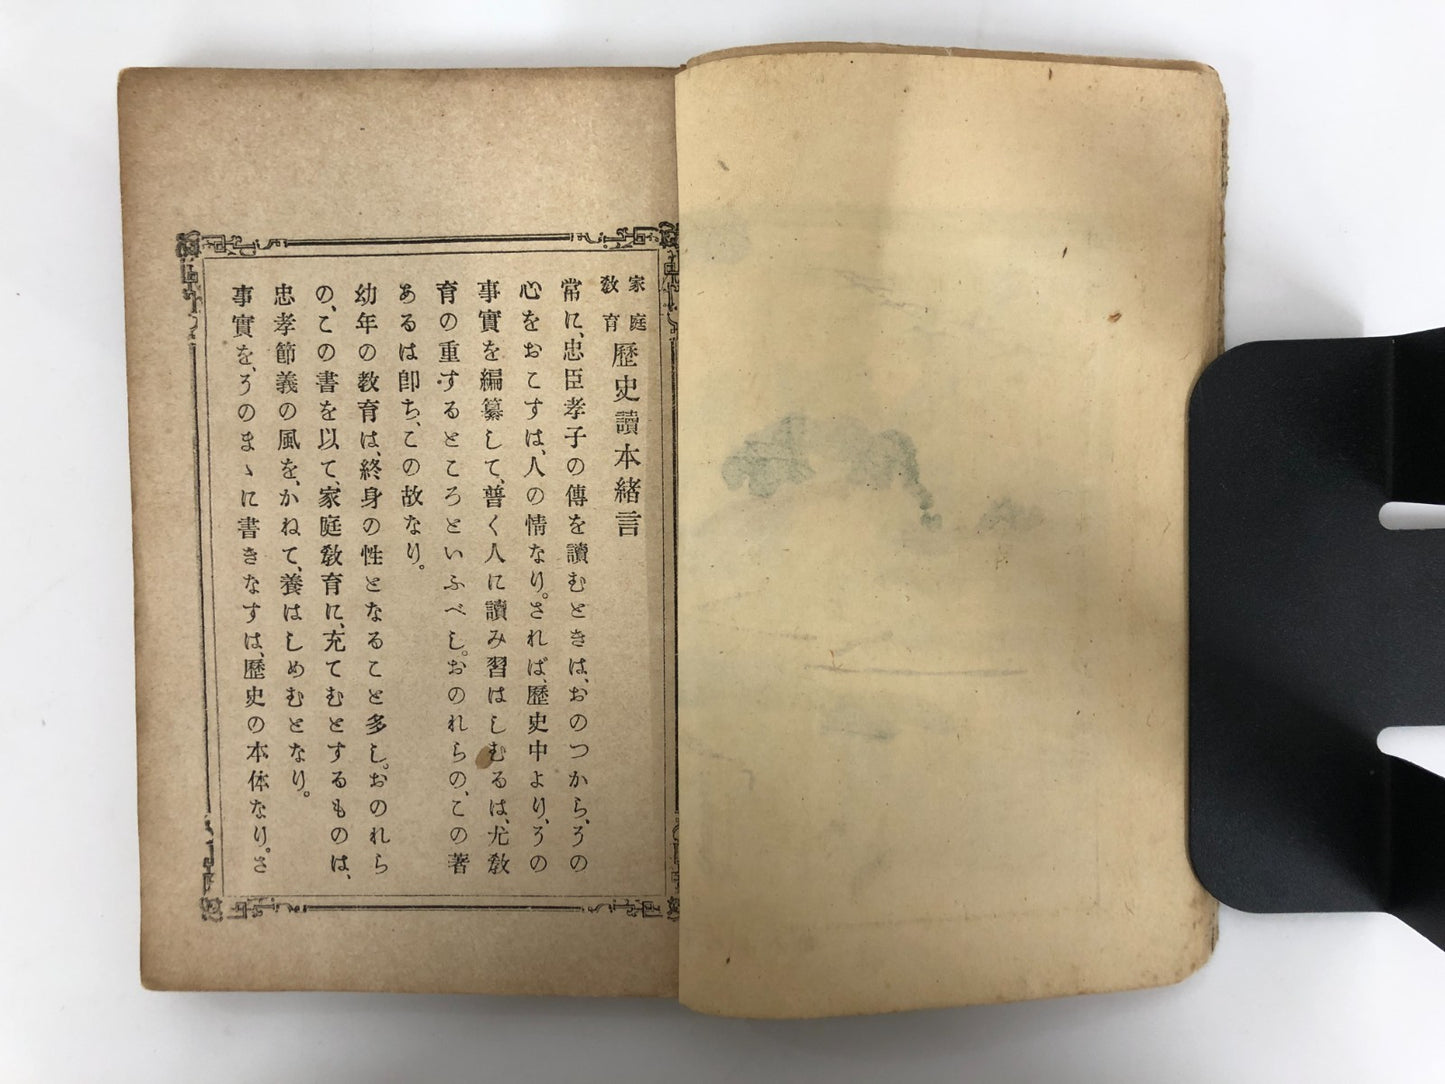 家庭教育歷史讀本緒言
常に、忠臣孝子の傳を讀むときは、おのつから、その
心をおこすは、人の情なり。されば、歷史中より、その
事實を編纂して、普く人に讀み習はしむるは、尤敎
育の重するところといふべし。おのれらの、この著
あるは卽ち、この故なり。
幼年の敎育は、終身の性となること多し。おのれら
の、この書を以て、家庭敎育に、充てむとするものは、
忠孝節義の風を、かねて、養はしめむとなり。
事實を、そのまゝに書きなすは、歷史の本体なり。さ